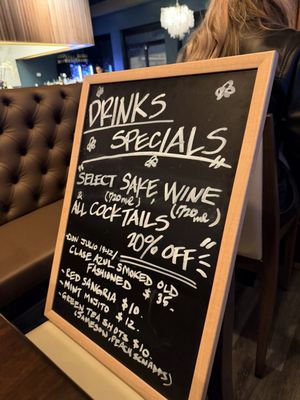 DRINKS
SPECIALS
SELECT SAKE, WINE
(720ml), (720ml)
& ALL COCKTAILS
20% OFF
-DON JULIO 1942/
CLASE AZUL SMOKED OLD
FASHIONED $35.
-RED SANGRIA $10.
-MINT MOJITO $12.
-GREEN TEA SHOTS $10.
(JAMESON, PEACH SCHNAPPS)